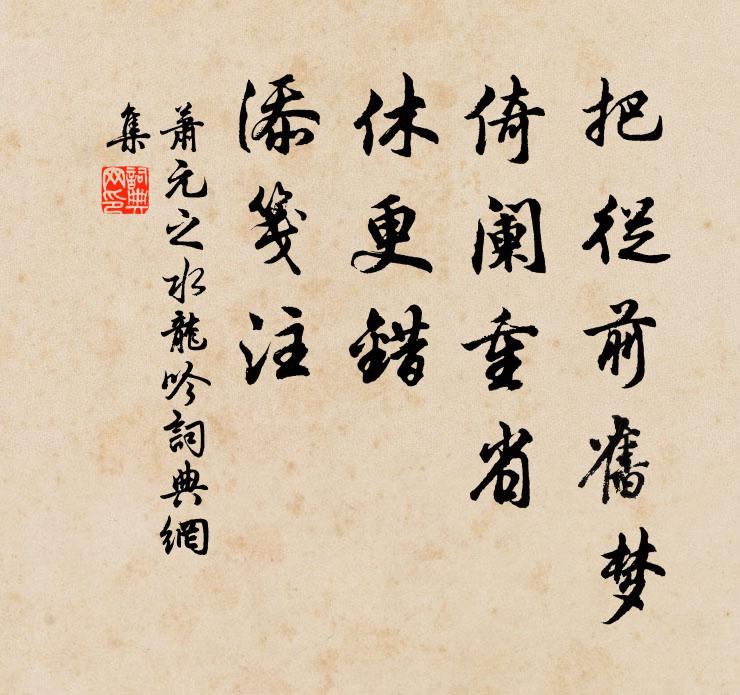 把従前舊梦
倚阑重省
休更錯
添箋注
蕭元之水龍吟詞典網
集
詞典网印